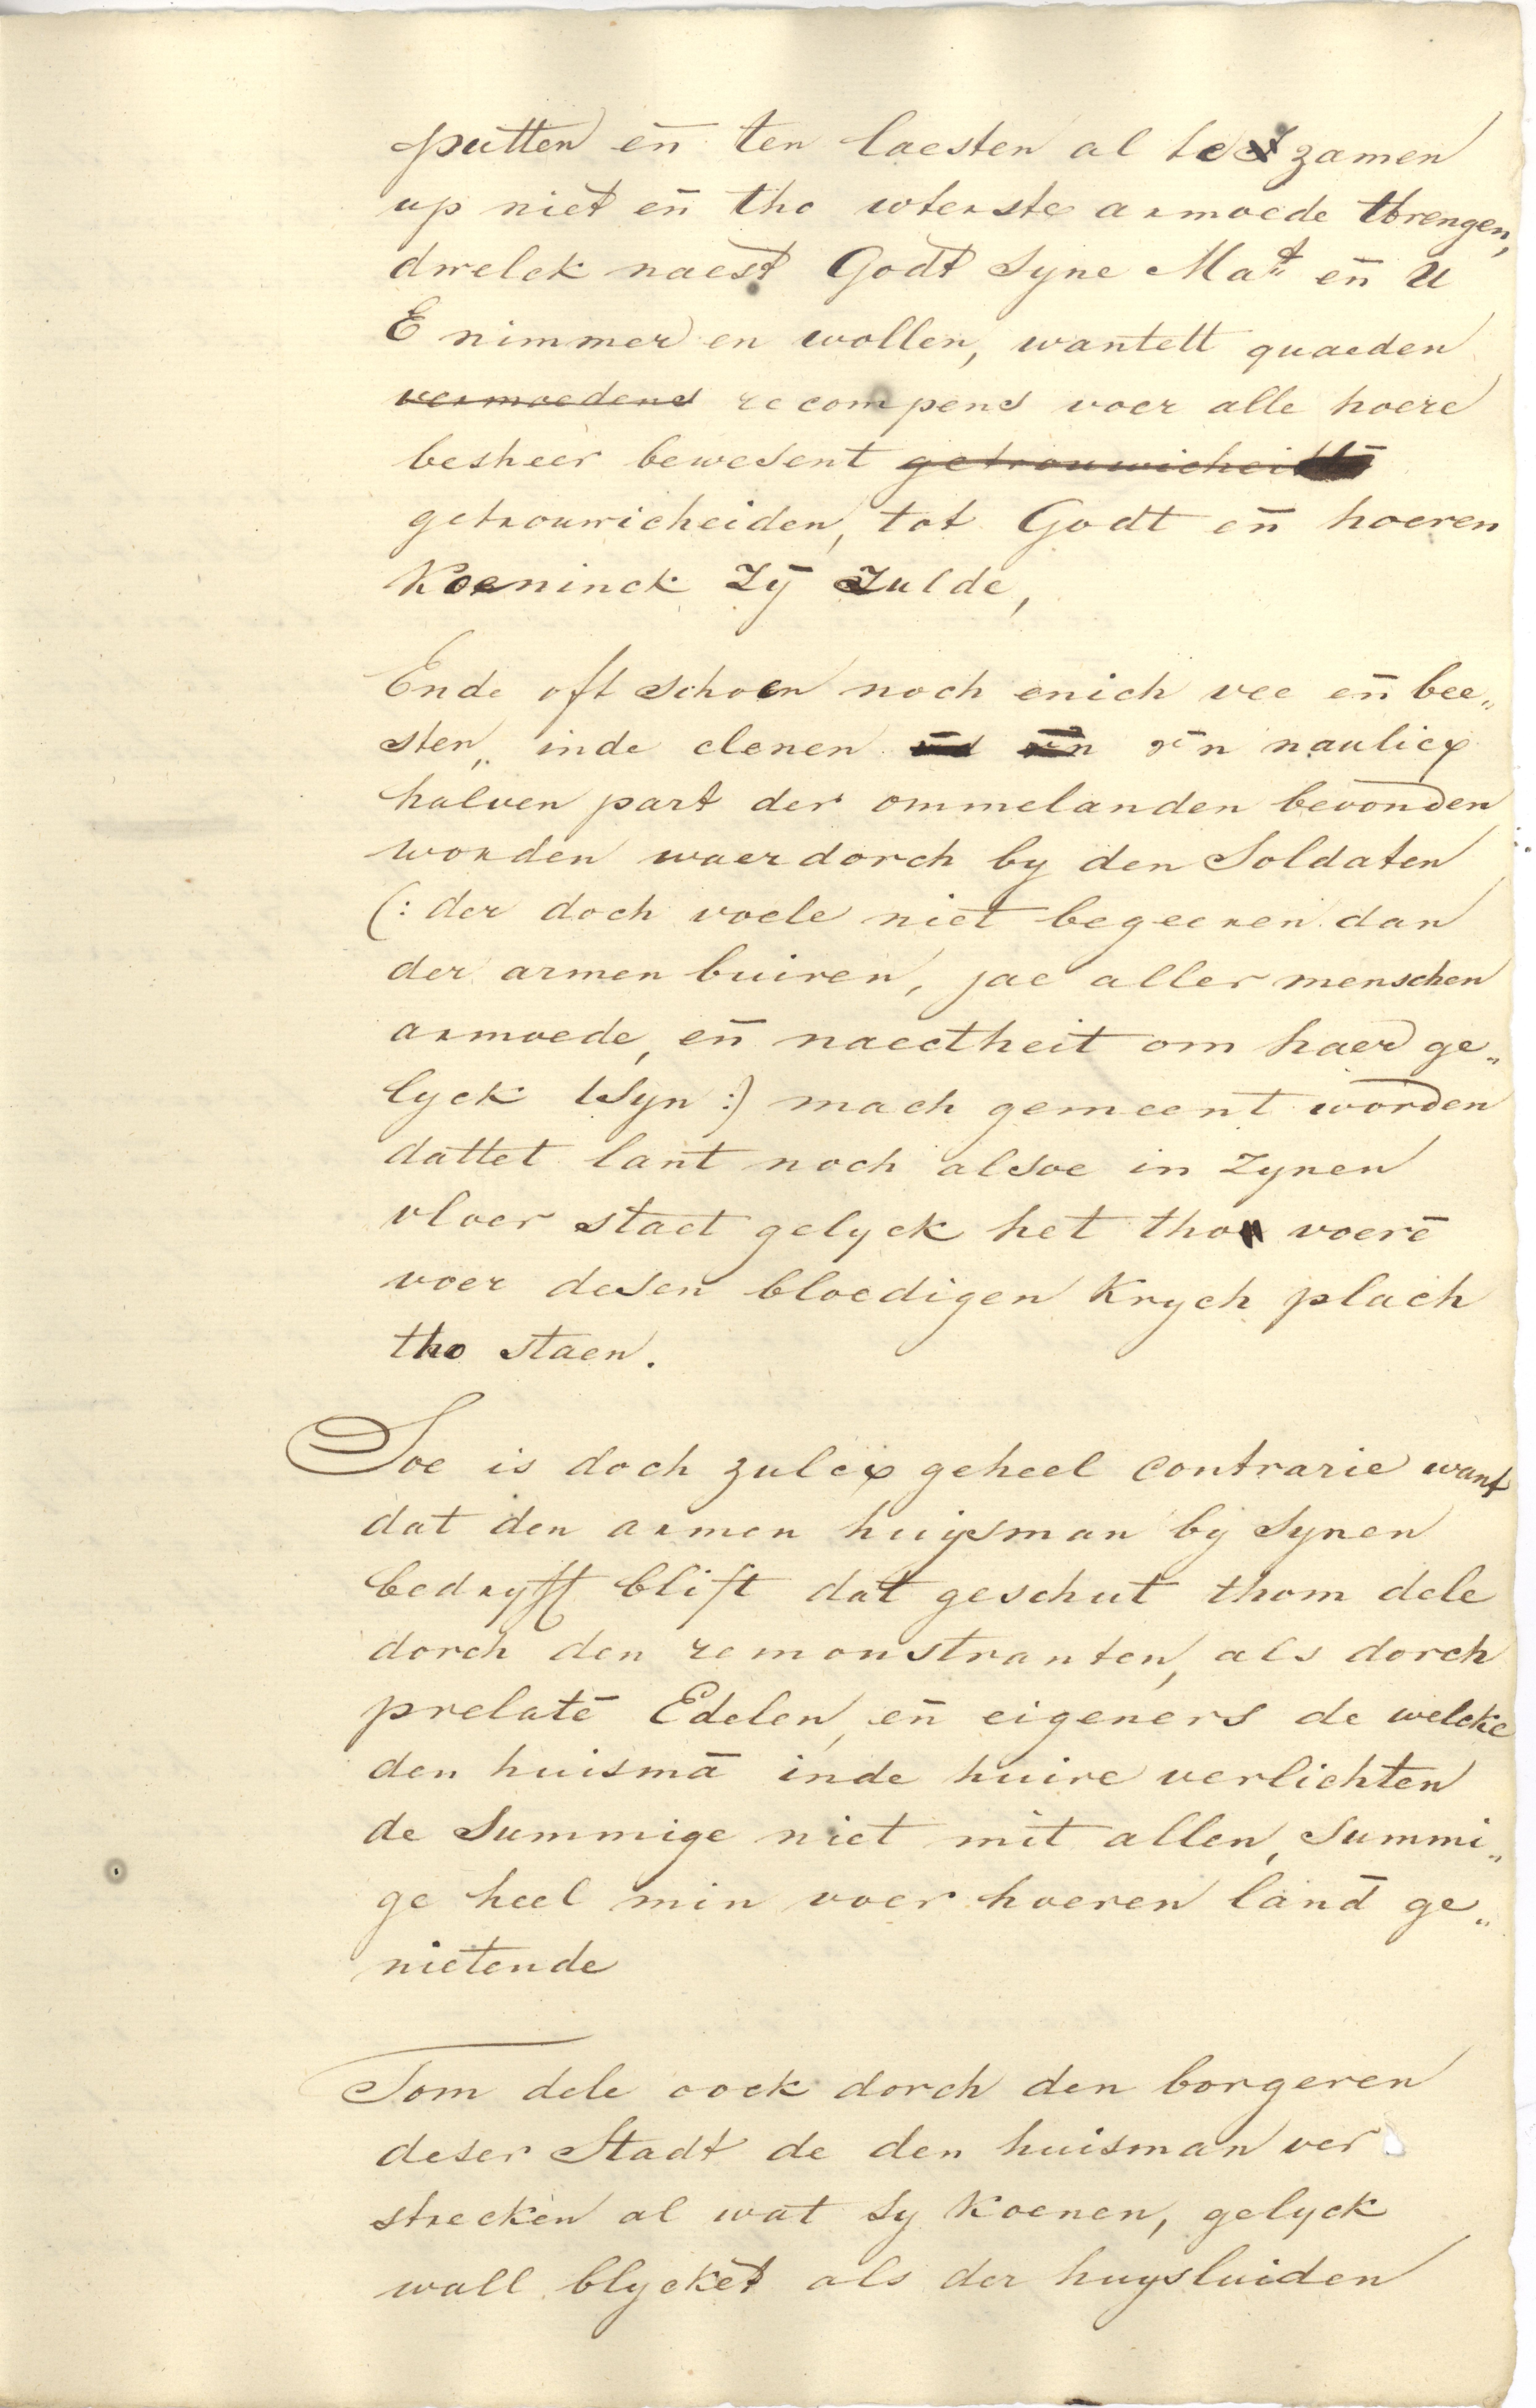 putten en̄ ten laesten al te zamen
up niet en̄ tho wterste armoede tbrengen,
dwelck naest Godt Syne Mat en̄ U
E nimmer en wollen, wantett quaeden
vermoedens recompens voer alle hoere
besheer bewesent getrouwicheid
getrouwicheiden, tot Godt en̄ hoeren
Koeninck Zȳ Zulde,
Ende oft schoen noch enich vee en̄ bee„
sten„ inde clenen naulicx
halven part der ommelanden bevonden
worden waerdorch by den Soldaten
(: der doch voele niet begeeren dan
der armen buiren, jae aller menschen
armoede, en̄ naectheit om haer ge„
lyck tSyn :) mach gemeent worden
dattet lant noch alsoe in zynen
vloer staet gelyck het tho voerē
voer desen bloedigen Krych plach
tho staen.
Soe is doch zulcx geheel contrarie want
dat den armen huysman by Synen
bedryfft blift dat geschut thom dele
dorch den remonstranten, als dorch
prelatē Edelen, en̄ eigeners de welcke
den huismā inde huire verlichten
de Summige niet mit allen, Summi„
ge heel min voer hoeren land ge„
nietende
Tom dele oock dorch den borgeren
deser Stadt de den huisman ver
strecken al wat Sy Koenen, gelyck
wall blycket als der huysluiden